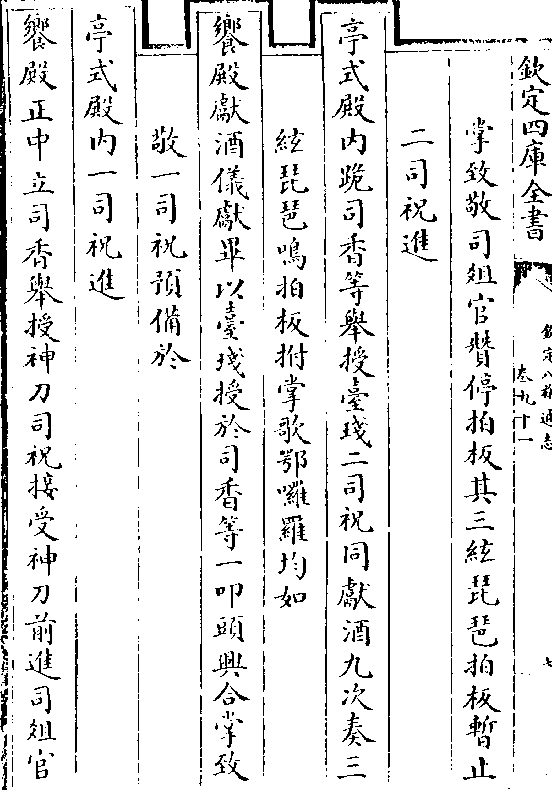 欽定四庫全書
欽定八旗通志
卷九十一
七
掌致敬司俎官贊停拍板其三絃琵琶拍板暫止
二司祝進
亭式殿内跪司香等舉授臺琖二司祝同獻酒九次奏三
絃琵琶鳴拍板拊掌歌鄂囉羅均如
饗殿獻酒儀獻畢以臺琖授於司香等一叩頭興合掌致
敬一司祝預備於
亭式殿内一司祝進
饗殿正中立司香舉授神刀司祝接受神刀前進司俎官